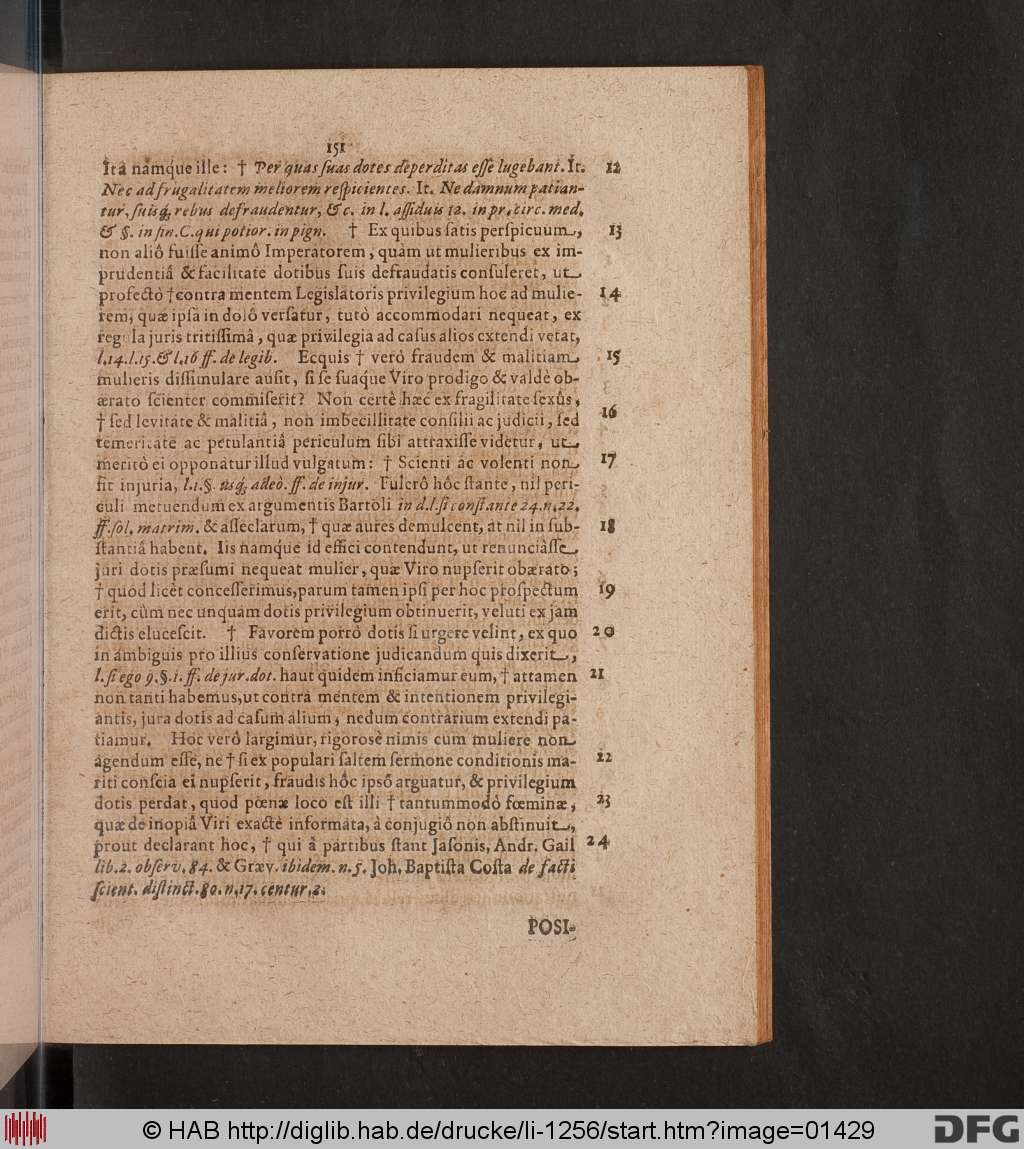 151
Ita namq́ue ille: † Per quas ſuas dotes deperditas eſſe lugebant. It. 12
Nec ad frugalitatem meliorem reſpicientes. It. Ne damnum patian-
tur, ſuisq́; rebus defraudentur, &c. in l. aſſiduis 12. in pr. circ. med.
& §. in fin. C. qui potior. in pign. † Ex quibus ſatis perſpicuum, 13
non aliô fuiſſe animô Imperatorem, quàm ut mulieribus ex im-
prudentiâ & facilitate dotibus ſuis defraudatis conſuleret, ut
profectò † contra mentem Legislatoris privilegium hoc ad mulie- 14
rem, quæ ipſa in dolô verſatur, tutò accommodari nequeat, ex
regula juris tritiſſimâ, quæ privilegia ad caſus alios extendi vetat,
l. 14. l. 15. & l. 16 ff. de legib. Ecquis † verò fraudem & malitiam 15
mulieris diſſimulare auſit, ſi ſe ſuaq́ue Viro prodigo & valdè ob-
ærato ſcienter commiſerit? Non certè hæc ex fragilitate ſexûs,
† ſed levitate & malitiâ, non imbecillitate conſilii ac judicii, ſed 16
temeritate ac petulantiâ periculum ſibi attraxiſſe videtur, ut
meritò ei opponatur illud vulgatum: † Scienti ac volenti non 17
fit injuria, l. 1. §. usq́; adeò. ff. de injur. Fulcrô hôc ſtante, nil peri-
culi metuendum ex argumentis Bartoli in d. l. ſi conſtante 24. n. 22.
ff. ſol. matrim. & aſſeclarum, † quæ aures demulcent, at nil in ſub- 18
ſtantiâ habent. Iis namq́ue id effici contendunt, ut renunciâſſe
juri dotis præſumi nequeat mulier, quæ Viro nupſerit obærato;
† quod licèt conceſſerimus, parum tamen ipſi per hoc proſpectum 19
erit, cùm nec unquam dotis privilegium obtinuerit, veluti ex jam
dictis eluceſcit. † Favorem porrò dotis ſi urgere velint, ex quo 20
in ambiguis pro illius conſervatione judicandum quis dixerit,
l. ſi ego 9. §. i. ff. de jur. dot. haut quidem inficiamur eum, † attamen 21
non tanti habemus, ut contra mentem & intentionem privilegi-
antis, jura dotis ad caſum alium, nedum contrarium extendi pa-
tiamur. Hoc verò largimur, rigorosè nimis cum muliere non
agendum eſſe, ne † ſi ex populari ſaltem ſermone conditionis ma- 22
riti conſcia ei nupſerit, fraudis hôc ipsô arguatur, & privilegium
dotis perdat, quod pœnæ loco eſt illi † tantummodò fœminæ, 23
quæ de inopiâ Viri exactè informata, à conjugiô non abſtinuit,
prout declarant hoc, † qui à partibus ſtant Jaſonis, Andr. Gail 24
lib. 2. obſerv. 84. & Græv. ibidem. n. 5. Joh. Baptiſta Coſta de facti
ſcient. diſtinct. 80. n. 17. centur. 2.
POSI-
© HAB http://diglib.hab.de/drucke/li-1256/start.htm?image=01429
DFG